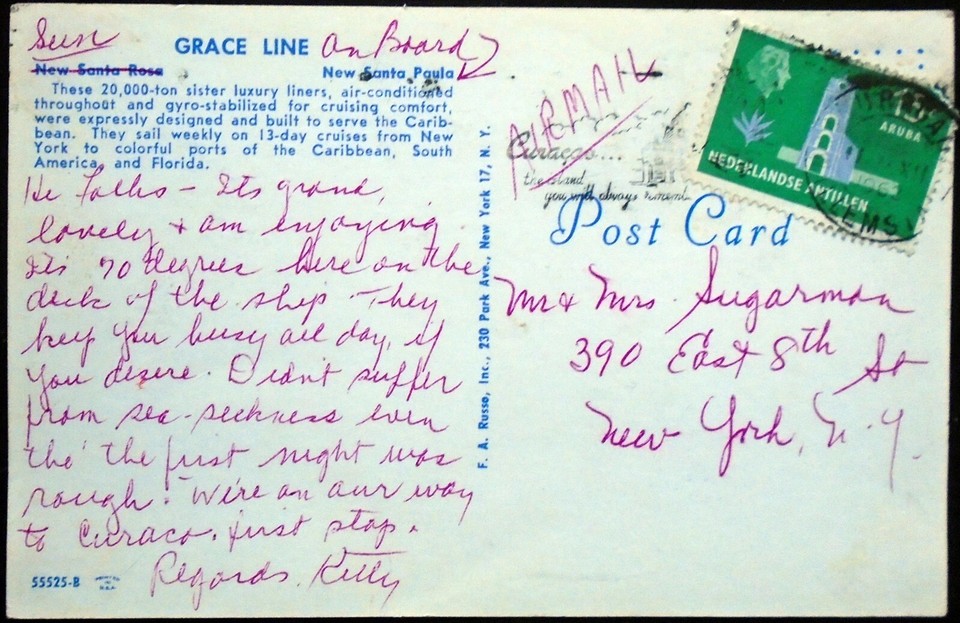 Sun
GRACE LINE On Board
New Santa Rosa New Santa Paula
These 20,000-ton sister luxury liners, air-conditioned
throughout and gyro-stabilized for cruising comfort,
were expressly designed and built to serve the Carib-
bean. They sail weekly on 13-day cruises from New
York to colorful ports of the Caribbean, South
America, and Florida.
Hi Folks - Its grand,
lovely & am enjoying.
Its 70 degrees here on the
deck of the ship - They
keep you busy all day, if
you desire. Didn't suffer
from sea-sickness even
tho' the first night was
rough. We're on our way
to Curaco, first stop.
Regards. Kitty
55525-B
PRINTED
IN
U.S.A.
F. A. Russo, Inc., 230 Park Ave., New York 17, N. Y.
AIRMAIL
Curaçao...
the island
you will always remember
15
ARUBA
NEDERLANDSE ANTILLEN
Post Card
Mr & Mrs. Sugarman
390 East 8th St
New York, N.Y.